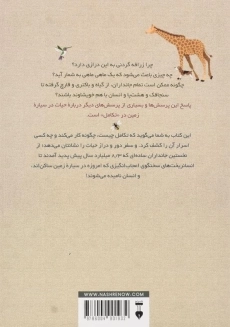 چرا زرافه گردنی به این درازی دارد؟
چه چیزی باعث می‌شود که یک ماهی ماهی به شمار آید؟
چگونه ممکن است تمام جانداران، از گیاه و باکتری و قارچ گرفته تا
سنجاقک و هشت‌پا و انسان با هم خویشاوند باشند؟
پاسخ این پرسش‌ها و بسیاری از پرسش‌های دیگر درباره حیات در سیاره
زمین در «تکامل» است.
این کتاب به شما می‌گوید که تکامل چیست، چگونه کار می‌کند و چه کسی
اسرار آن را کشف کرد. و سفر دور و دراز حیات را نشانتان می‌دهد؛ از
نخستین جانداران ساده‌ای که ۳/۸ میلیارد سال پیش پدید آمدند تا
انسان‌ریخت‌های سخنگوی اعجاب‌انگیزی که امروزه در سیاره زمین ساکن‌اند
و انسان نامیده می‌شوند!
WWW.NASHRENOW.COM